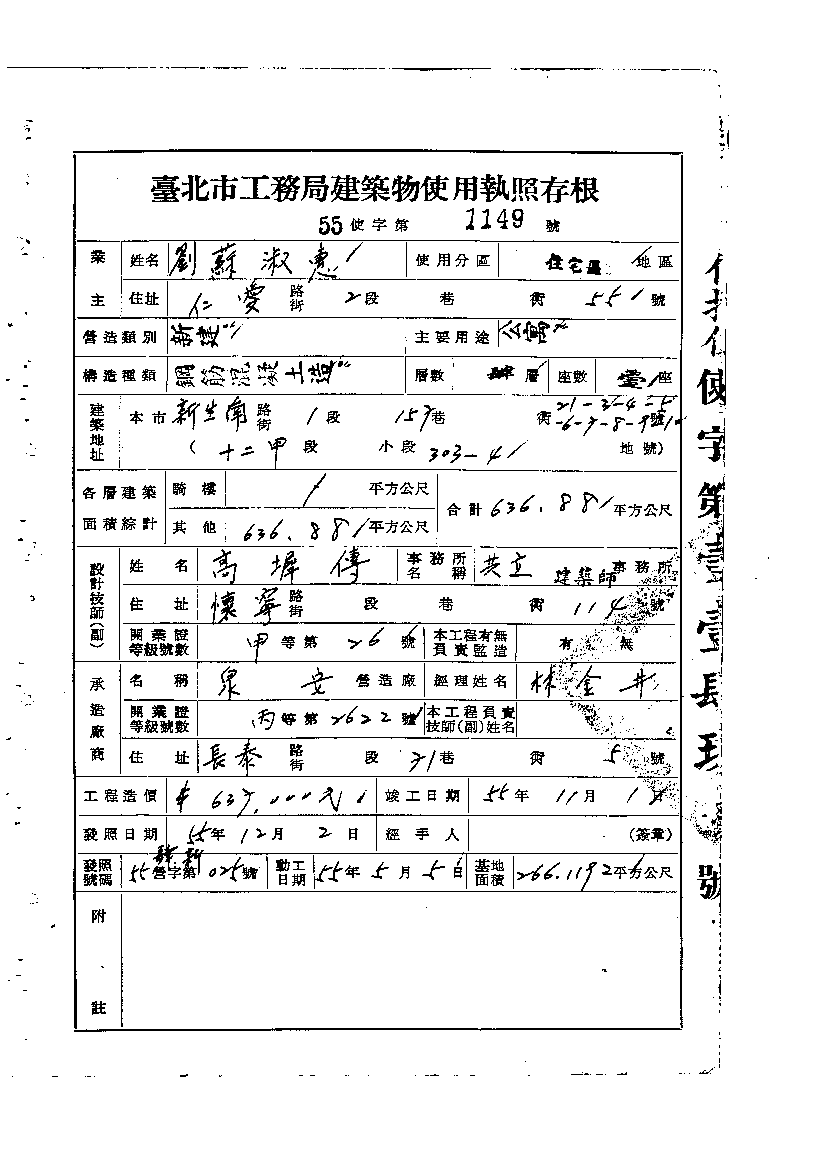 臺北市工務局建築物使用執照存根
55使字第 1149 號
業主 姓名 劉蘇淑惠 使用分區 住宅區 地區
住址 仁愛 路街 2段 巷 衖 551 號
營造類別 新建 主要用途 公寓
構造種類 鋼筋混凝土造 層數 肆層 座數 壹座
建築地址 本市 新生南 路街 1段 157巷 衖 號
(十二甲段 小段 303-41 地號)
各層建築面積綜計 騎樓 / 平方公尺 合計 636.881平方公尺
其他 636.881平方公尺
設計技師(副) 姓名 高墀傳 事務所名稱 共立 建築師事務所
住址 懷寧 路街 段 巷 衖 114 號
開業證等級號數 甲等第 266 號 本工程有無負責監造 有 無
承造廠商 名稱 泉安 營造廠 經理姓名 林金井
開業證等級號數 丙等第2622號 本工程負責技師(副)姓名
住址 長泰 路街 段 31巷 衖 5號
工程造價 637,000元 竣工日期 55年11月1日
發照日期 55年12月2日 經手人 (簽章)
發照號碼 55營字第025號 動工日期 55年5月5日 基地面積 266.1192平方公尺
附註
使字第壹壹 號